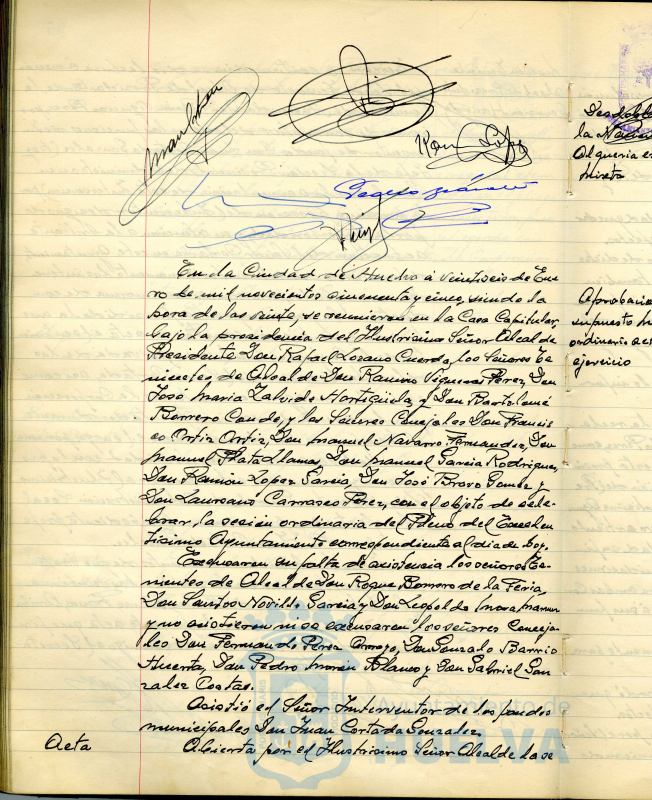 Ramon Lopez
En la Ciudad de Huelva á veintiseis de Ene
ro de mil novecientos cincuenta y cinco, siendo la
hora de las veinte, se reunieron en la Casa Capitular,
bajo la presidencia del Ilustrisimo Señor Alcalde
Presidente Don Rafael Lozano Cuerda, los Señores Te
nientes de Alcalde Don Ramiro Vigueras Perez, Don
José Maria Zalvide Hortigüela, y Don Bartolomé
Borrero Conde, y los Señores Concejales Don Francis
co Ortiz Ortiz, Don Manuel Navarro Fernandez, Don
Manuel Plata Llamas, Don Manuel Garcia Rodriguez,
Don Ramón Lopez Garcia, Don José Bravo Gomez y
Don Laureano Carrasco Perez, con el objeto de cele-
brar, la sesión ordinaria del Pleno del Excelen
tisimo Ayuntamiento correspondiente al dia de hoy.
Excusaron su falta de asistencia los señores Te-
nientes de Alcalde Don Roque Borrero de la Feria,
Don Santos Novillo Garcia y Don Leopoldo Mora
y no asistieron ni se excusaron los señores Conceja-
les Don Fernando Perez Don Gonzalo Barrio
Huerta, Don Pedro Morón Blanco y Don Gabriel Gon
zalez Costas.
Asistió el Señor Interventor de los fondos
municipales Don Juan Cortada Gonzalez
Acta
Abierta por el Ilustrisimo Señor Alcalde la se
la
Alqueria
Mireta
Aprobación
supuesto
ordinario
ejercicio
Ayuntamiento de
HUELVA